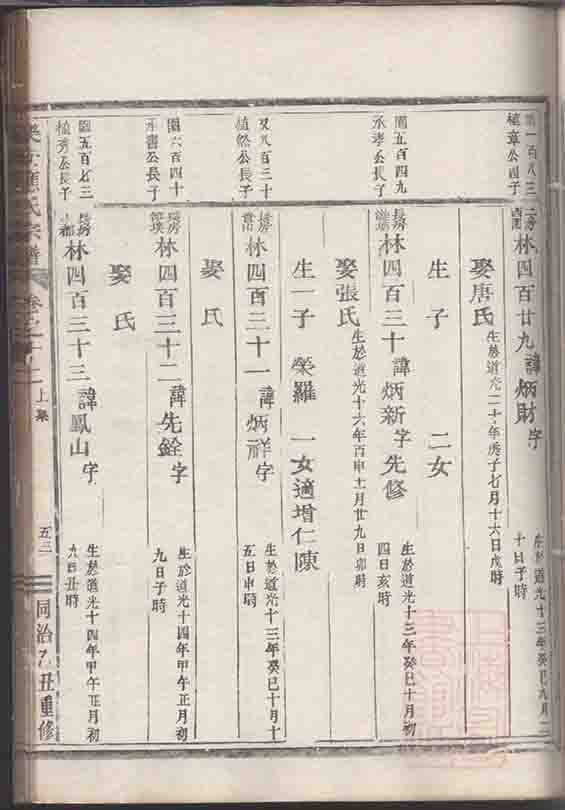 一百八三
植章公四子
林四百廿九 諱炳財 字
生於道光十三年癸巳九月二
十日子時
娶唐氏 生於道光二十年庚子七月十六日戌時
生子 二女
園五百四九
承孝公長子
長房
林四百三十 諱炳新 字先修
生於道光十三年癸巳十月初
四日亥時
娶張氏 生於道光十六年丙申十二月廿九日卯時
生一子 榮羅 一女適增仁陳
又八百三十
植然公長子
長房
林四百三十一 諱炳祥 字
生於道光十三年癸巳十月十
五日申時
娶氏
園六百四十
承書公長子
長房
林四百三十二 諱先銓 字
生於道光十四年甲午正月初
九日子時
娶氏
園五百七三
植秀公長子
長房
林四百三十三 諱鳳山 字
生於道光十四年甲午正月初
九日丑時
應氏宗譜 卷之十二 上集 五三 同治乙丑重修